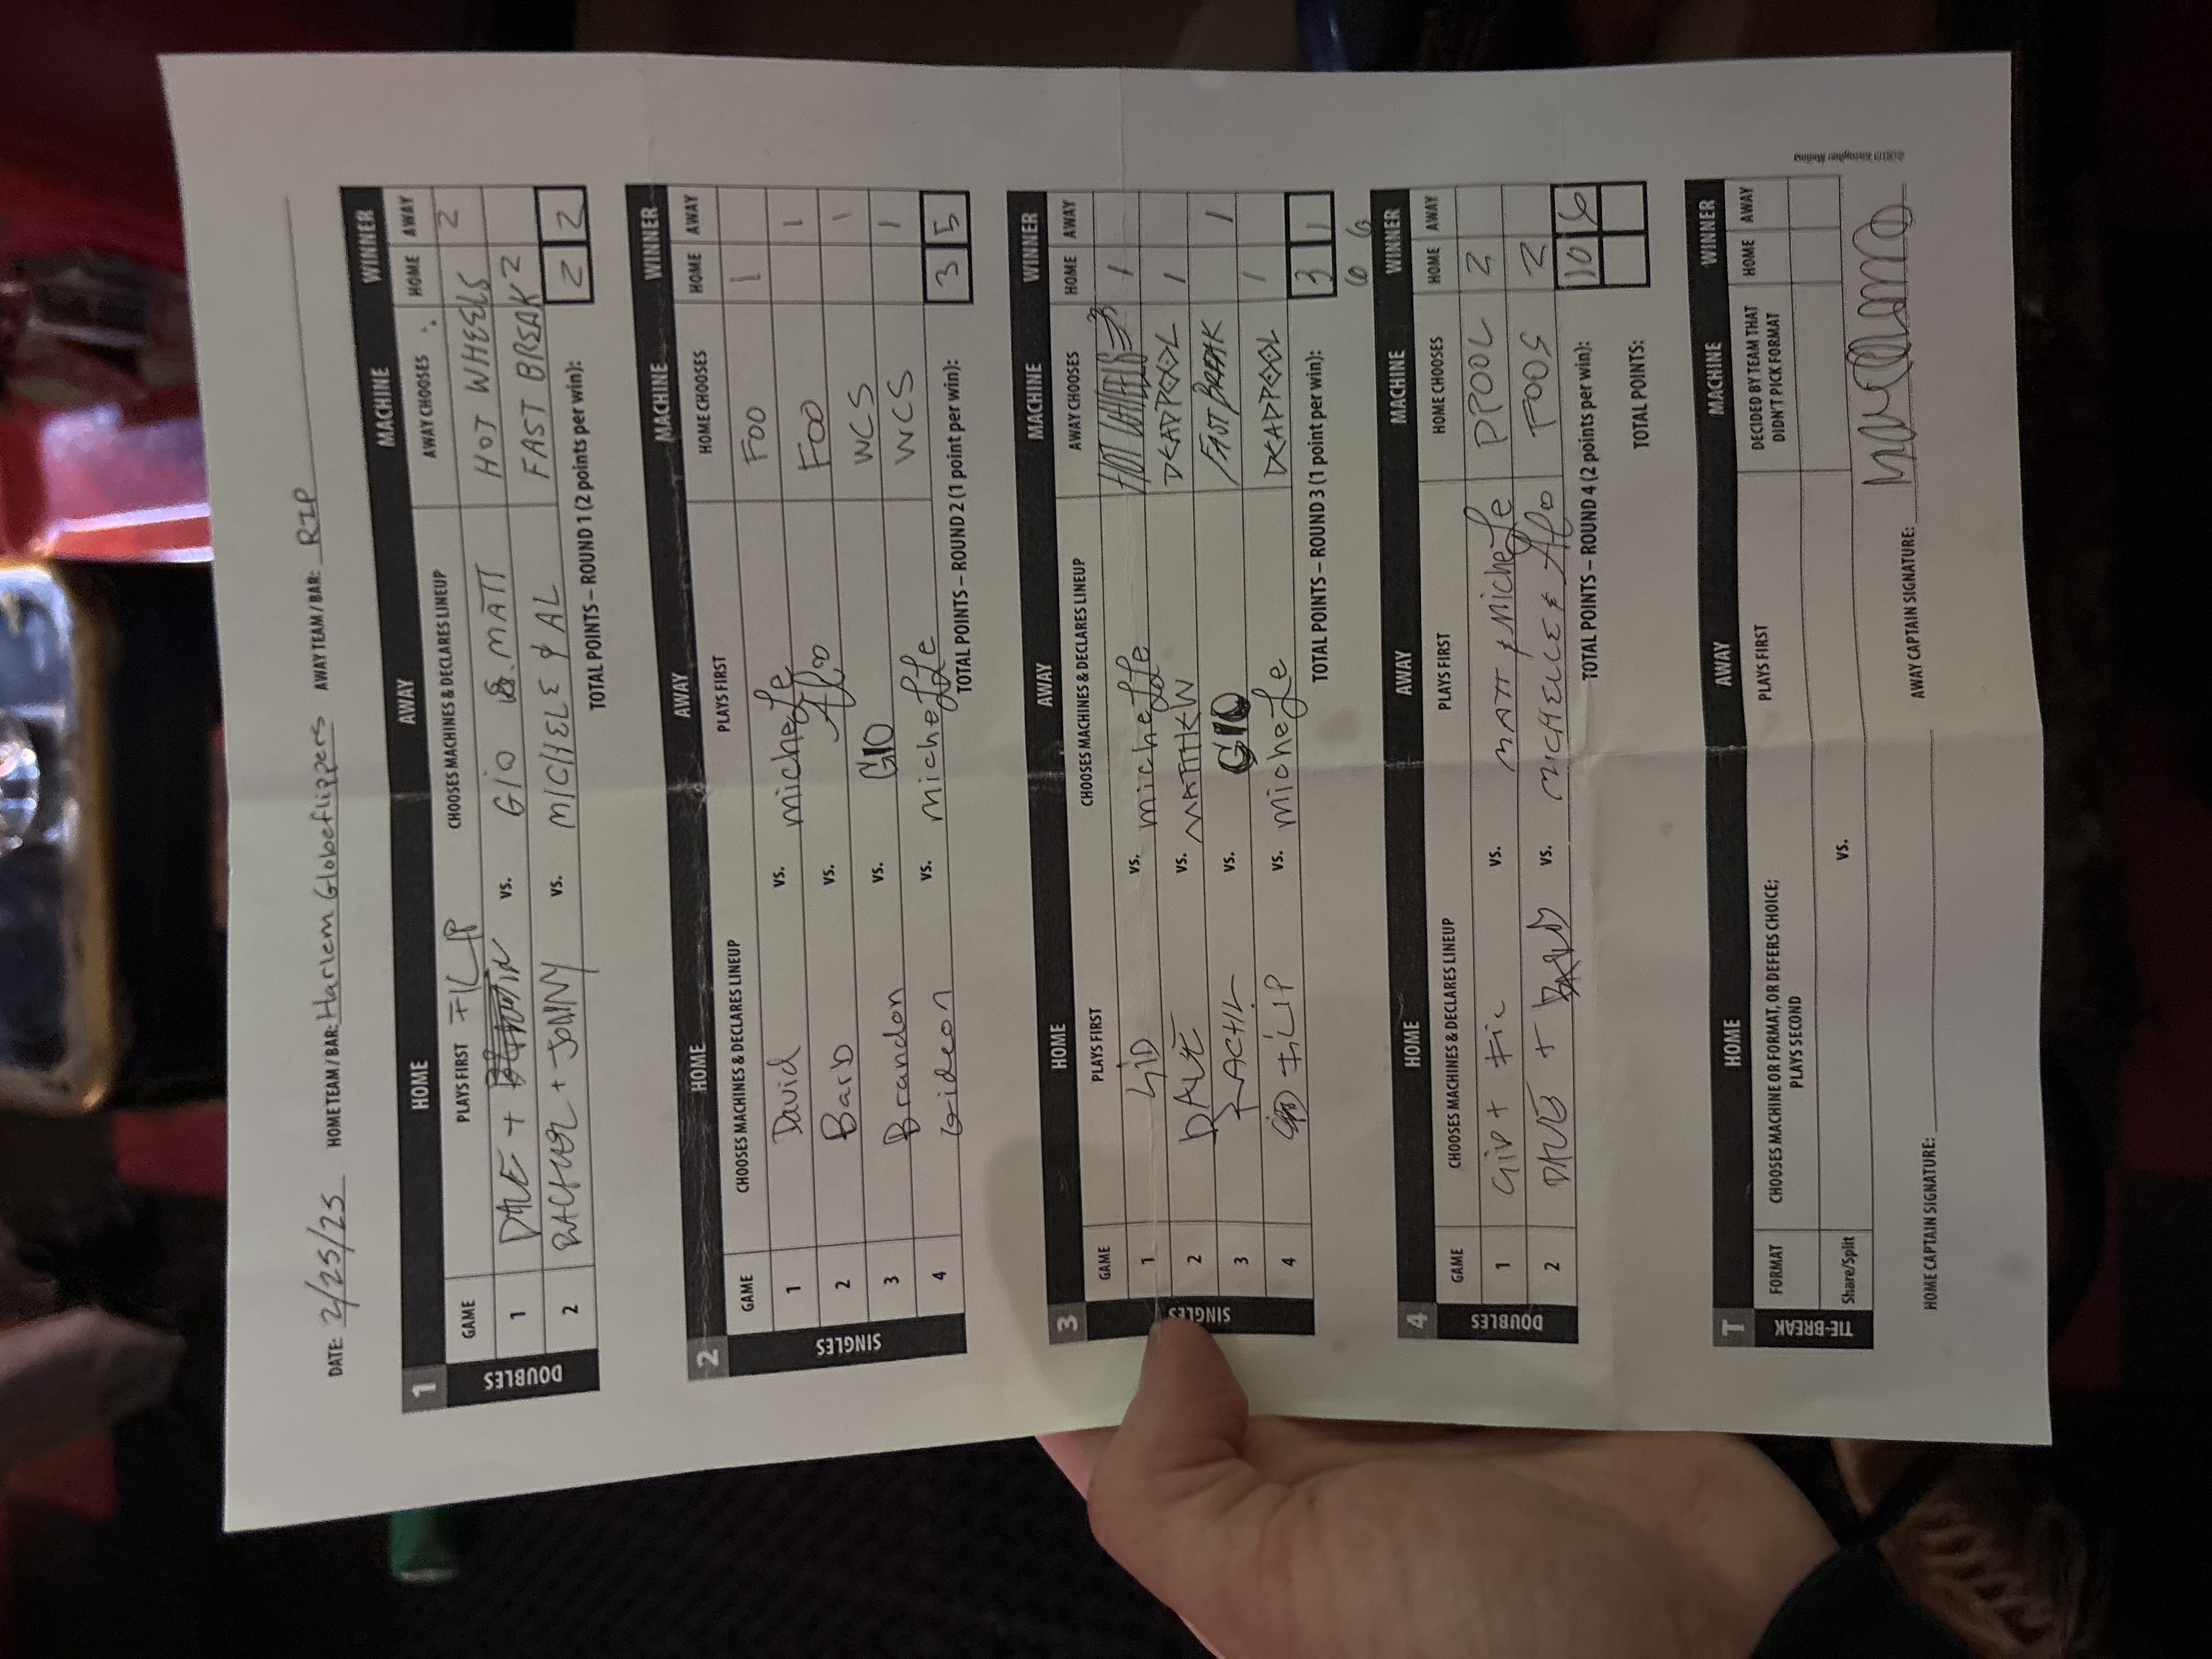 DATE: 2/25/25 HOME TEAM / BAR: Harlem Globeflippers AWAY TEAM / BAR: RIP
1 HOME AWAY MACHINE WINNER
GAME PLAYS FIRST FILIP CHOOSES MACHINES & DECLARES LINEUP AWAY CHOOSES HOME AWAY
DOUBLES
1 DAVE + vs. GIO & MATT HOT WHEELS 2
2 RACHEL + JONNY vs. MICHELE & AL FAST BREAK 2
TOTAL POINTS – ROUND 1 (2 points per win): 2 2
2 HOME AWAY MACHINE WINNER
GAME CHOOSES MACHINES & DECLARES LINEUP PLAYS FIRST HOME CHOOSES HOME AWAY
SINGLES
1 David vs. michele FOO 1
2 Barb vs. Alo FOO 1
3 Brandon vs. GIO WCS 1
4 Gideon vs. michele WCS 1
TOTAL POINTS – ROUND 2 (1 point per win): 3 5
3 HOME AWAY MACHINE WINNER
GAME PLAYS FIRST CHOOSES MACHINES & DECLARES LINEUP AWAY CHOOSES HOME AWAY
SINGLES
1 GID vs. michele HOT WHEELS 1
2 DAVE vs. MATTHEW DEADPOOL 1
3 RACHEL vs. GIO FAST BREAK 1
4 FILIP vs. michele DEADPOOL 1
TOTAL POINTS – ROUND 3 (1 point per win): 3 1
6 6
4 HOME AWAY MACHINE WINNER
GAME CHOOSES MACHINES & DECLARES LINEUP PLAYS FIRST HOME CHOOSES HOME AWAY
DOUBLES
1 GID + FIL vs. MATT & Michele PPOOL 2
2 DAVE + DAVID vs. MICHELLE & Alo FOOS 2
TOTAL POINTS – ROUND 4 (2 points per win): 10 6
TOTAL POINTS:
©2013 Gallagher Media
T HOME AWAY MACHINE WINNER
FORMAT CHOOSES MACHINE OR FORMAT, OR DEFERS CHOICE; PLAYS SECOND PLAYS FIRST DECIDED BY TEAM THAT DIDN'T PICK FORMAT HOME AWAY
TIE-BREAK
Share/Split vs.
HOME CAPTAIN SIGNATURE: AWAY CAPTAIN SIGNATURE: